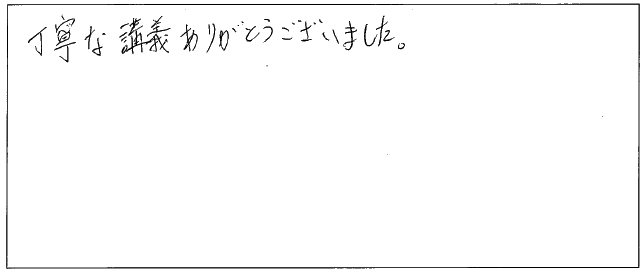 丁寧な講義ありがとうございました。